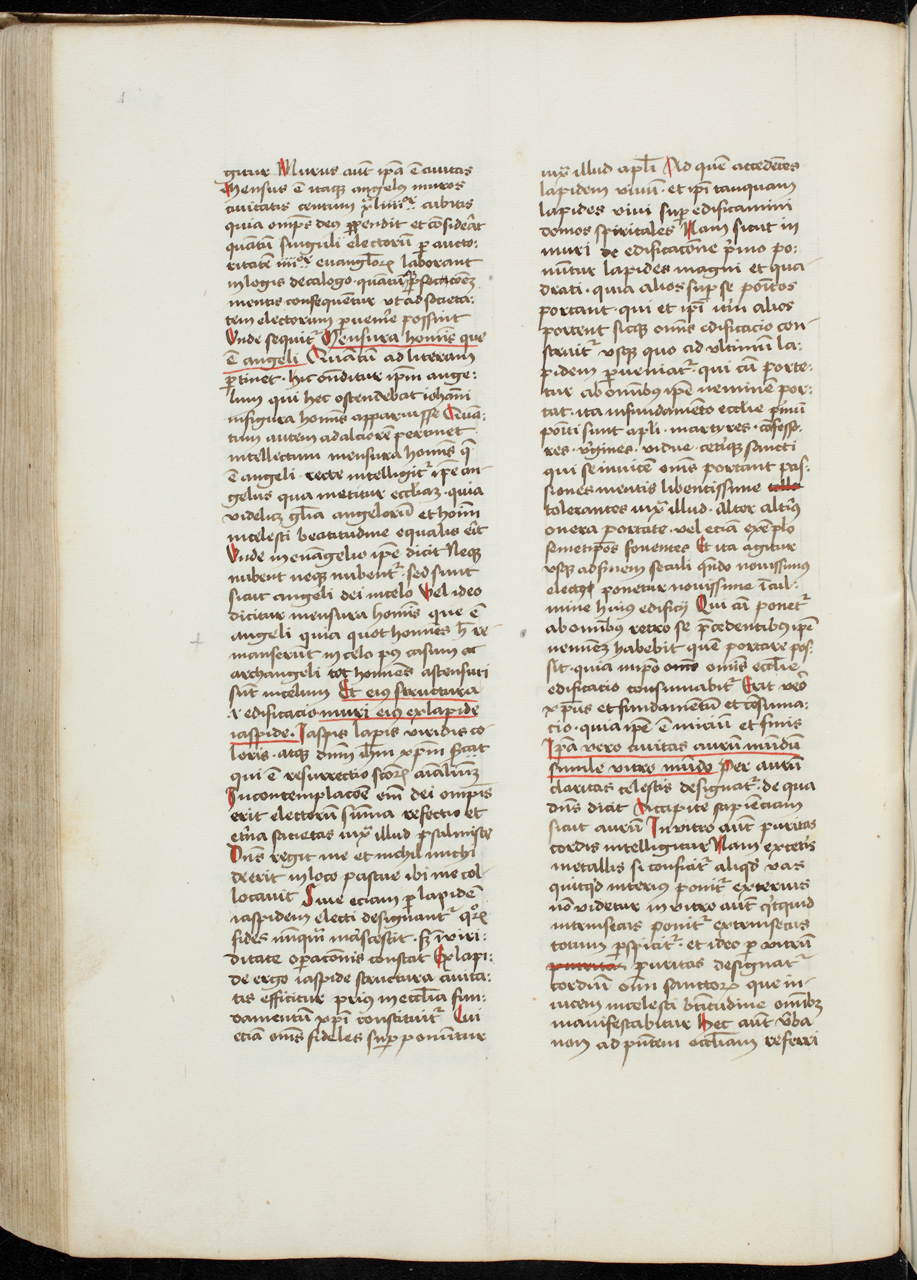 gitur Murus aut̄ ip̄a ē ciuitas
Mensus ē itaqꝫ angelus muros
ciuitatis centum xliiiiᵒʳ cubitis
quia omp̄s deꝰ ꝑpendit et cōsiderat
quātū singuli electorū ꝑ aucto:
ritatē iiiiᵒʳ euangl̄orꝫ laborant
in legis decalogo · quātūqꝫ ꝑfectōeꝫ
mentis consequentur vt ad societa:
tem electorum ꝑuenire possint
Vnde sequitᷣ Mensura hoīnis que
ē angeli Quātū ad literam
ꝑtinet · hic oñditur ip̄m ange:
lum qui hec ostendebat iohāni
in figura hoīnis apparuisse Quā:
tum autem ad alciorē pertinet
intellectum mensura hoīnis q̄
ē angeli · recte intelligitᷣ ip̄e an
gelus qua metitur eccl̄iaꝫ · quia
videlicꝫ gl̄ia angelorū et hoīm
in celesti beatitudine equalis erit
Vnde in euāgelio ip̄e dicit Neqꝫ
nubent neqꝫ nubentᷣ · sed sunt
sicut angeli dei in celo Vel ideo
dicitur mensura hoīnis que ē
angeli quia quot hoīnes h̄ re
manserūt in celo pꝰ casum ac
archangeli tot hoīnes ascensuri
sūt in celum Et eiꝰ structura
·i· edificacio muri eiꝰ ex lapide
iaspide · Iaspis lapis viridis co
loris · atqꝫ dn̄m ih̄m xp̄m sīcat
qui ē resurrectio scōrꝫ aīaliūꝫ
In contemplacōe eīm dei omp̄is
erit electorū sūma refectio et
et̄na sacietas iuxᷓ illud psalmiste
Dn̄s regit me et nichil michi
deerit in loco pascue ibi me col
locauit Siue eciam ꝑ lapidē
iaspidem electi designantᷣ qꝛꝫ
fides nūqͣꝫ marcescit · sꝫ ī viri:
ditate oꝑacōnis constat Ex lapi:
de ergo iaspide structura ciuita:
tis efficitur prius in eccl̄ia fun:
damentū xp̄i cōstituitᷣ Cui
eciā om̄s fideles supponūtur
iuxᷓ illud apl̄i Ad quē accedētes
lapidem viuū · et ip̄i tanquam
lapides viui suꝑ edificamini
domos spiritales Nam sicut in
muri de edificacōne prīmo po:
nūtur lapides magni et qua
drati · quia alios suꝑ se pōītos
portant · qui et ip̄i itm̄ alios
portent sicqꝫ om̄is edificacio con
struitᷣ vsqꝫ quo ad vltimū la:
pidem ꝑueniatᷣ · qui cū porte:
tur ab oīnibꝰ ip̄e neminē por:
tat · ita in fundamēto eccl̄ie prīmū
pōīti sunt apl̄i · martyres · cōfesso:
res · v̓gines · vidue · cetiqꝫ sancti
qui se inuicē om̄s portant pas:
siones mentis libentissime
tolerantes iuxᷓ illud · Alter alt̓iꝰ
onera portate · vel eciam exēplo
semetip̄os fouentes Et ita agitur
vsqꝫ ad finem seculi quādo nouissimus
electꝰ ponetur nouissime ī cul:
mine huiꝰ edificij Qui cū ponetᷣ
ab oīnibꝰ retro se p̄cedentibꝰ ip̄e
neminē habebit quē portare pos:
sit · quia in ip̄o om̄is eccl̄ie
edificacio consumabitᷣ Erit v̓o
xp̄us et fundamentū et cōsuma:
cio · quia ip̄e ē iniciū et finis
Ip̄a vero ciuitas aurū mūdū
simile vitro mūdo Per aurū
claritas celestis designatᷣ · de qua
dn̄s dicit Accipite sapienciam
sicut aurū In vitro aūt puritas
cordis intelligitur Nam ex cet̓is
metallis si conficitᷣ aliqḋ vas
quicqͥd interius ponitᷣ exterius
nō videtur in vitro aūt qͥcquid
intrinsecus ponitᷣ extrinsecus
totum ꝑspicitᷣ · et ideo ꝑ vitrū
puritas designatᷣ
cordiū oīm sanctorꝫ que in
uicem in celesti bt̄itudine oīnibꝫ
manifestabitur Hec aūt v̓ba
non ad pn̄tem eccl̄iam referri